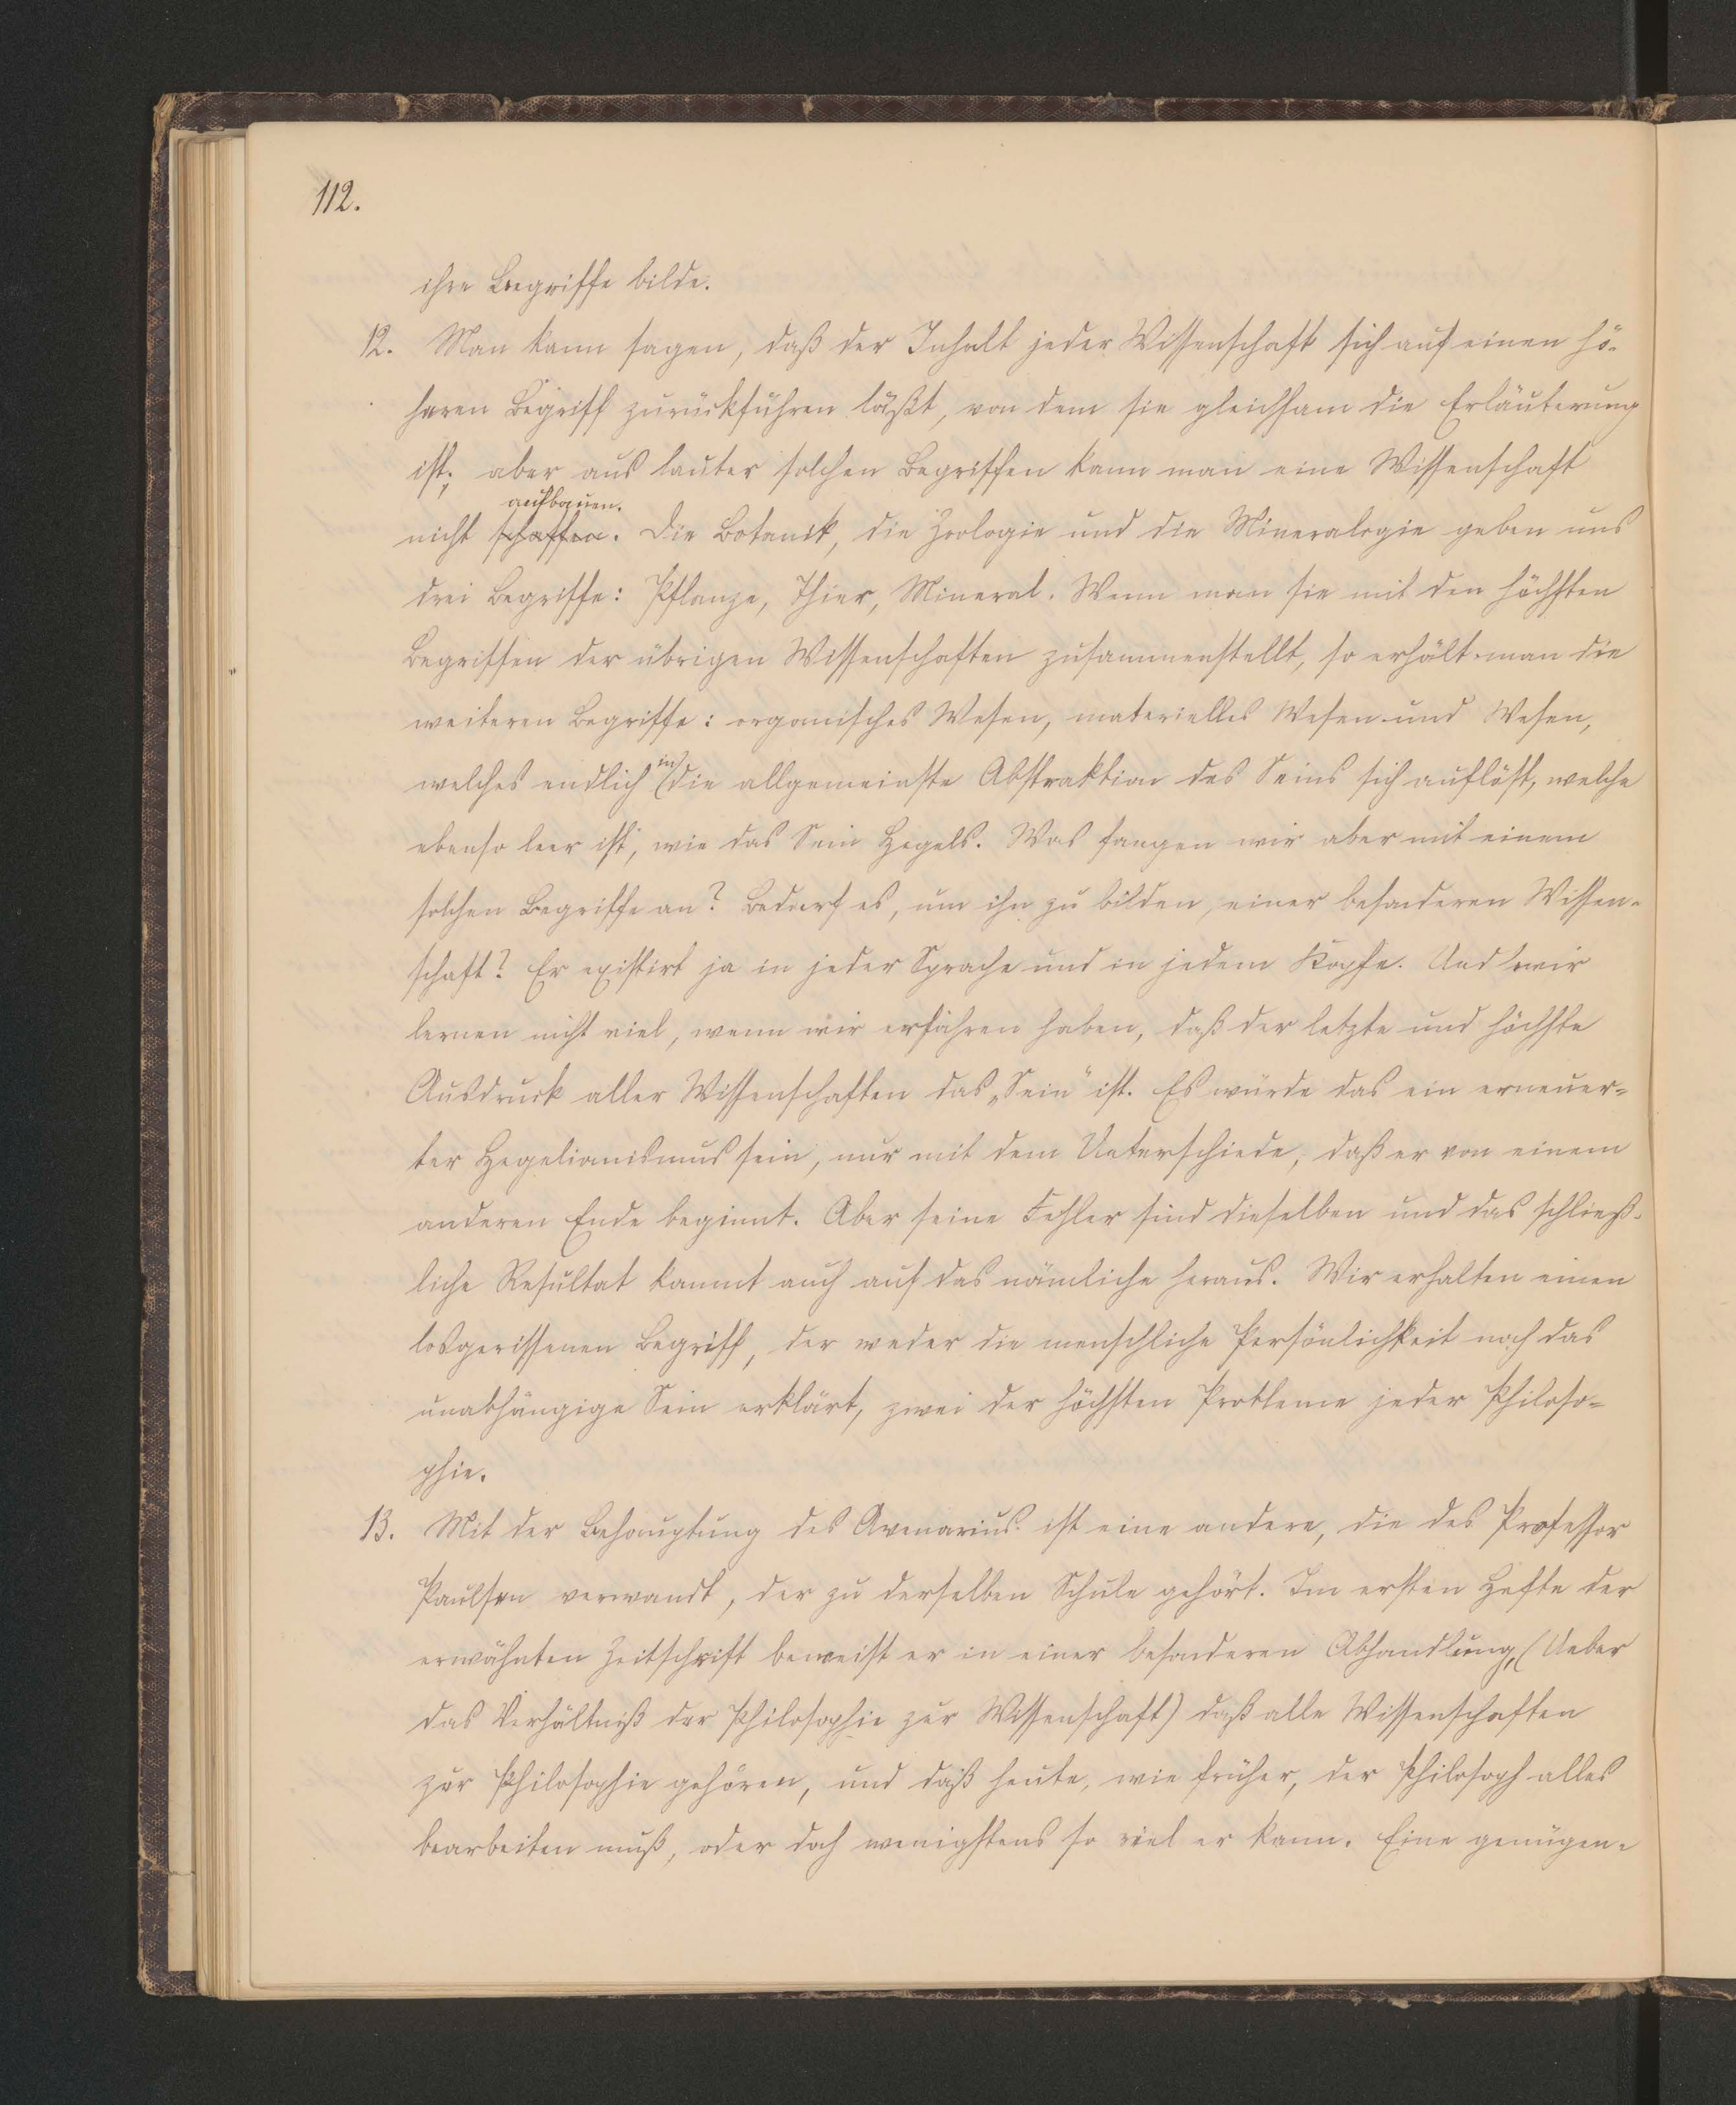 112.
ihre Begriffe bilde.
12. Man kann sagen, daß der Inhalt jeder Wissenschaft sich auf einen hö-
heren Begriff zurückführen läßt, von dem sie gleichsam die Erläuterung
ist; aber aus lauter solchen Begriffen kann man eine Wissenschaft
aufbauen.
nicht schaffen. Die Botanik, die Zoologie und die Mineralogie geben uns
drei Begriffe: Pflanze, Thier, Mineral. Wenn man sie mit den höchsten
Begriffen der übrigen Wissenschaften zusammenstellt, so erhält man die
weiteren Begriffe: organisches Wesen, materielles Wesen und Wesen,
welches endlich in die allgemeinste Abstraktion des Seins sich auflöst, welche
ebenso leer ist, wie das Sein Hegels. Was fangen wir aber mit einem
solchen Begriffe an? Bedarf es, um ihn zu bilden, einer besonderen Wissen-
schaft? Er existirt ja in jeder Sprache und in jedem Kopfe. Und wir
lernen nicht viel, wenn wir erfahren haben, daß der letzte und höchste
Ausdruck aller Wissenschaften das „Sein" ist. Es würde das ein erneuer-
ter Hegelianismus sein, nur mit dem Unterschiede, daß er von einem
anderen Ende beginnt. Aber seine Fehler sind dieselben und das schließ-
liche Resultat kommt auch auf das nämliche heraus. Wir erhalten einen
losgerissenen Begriff, der weder die menschliche Persönlichkeit noch das
unabhängige Sein erklärt, zwei der höchsten Probleme jeder Philoso-
phie.
13. Mit der Behauptung des Avenarius ist eine andere, die des Professor
Paulsen verwandt, der zu derselben Schule gehört. Im ersten Hefte der
erwähnten Zeitschrift beweist er in einer besonderen Abhandlung, (Ueber
das Verhältniß der Philosophie zur Wissenschaft) daß alle Wissenschaften
zur Philosophie gehören, und daß heute, wie früher, der Philosoph alles
bearbeiten muß, oder doch wenigstens so viel er kann. Eine genügen-